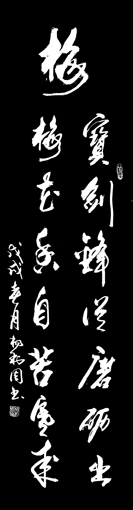 梅
寶劍鋒從磨礪出
梅花香自苦寒來
戊戌春月楊楊周書